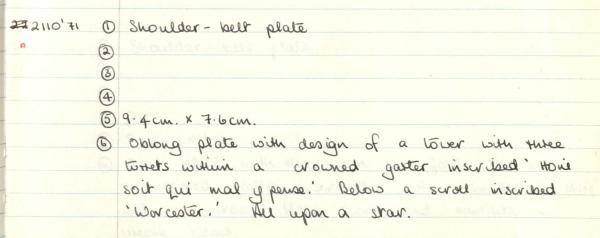 2110'71 ① Shoulder-belt plate
②
③
④
⑤ 9.4cm. x 7.6cm.
⑥ Oblong plate with design of a tower with three
turrets within a crowned garter inscribed 'Honi
soit qui mal y pense.' Below a scroll inscribed
'Worcester.' All upon a star.